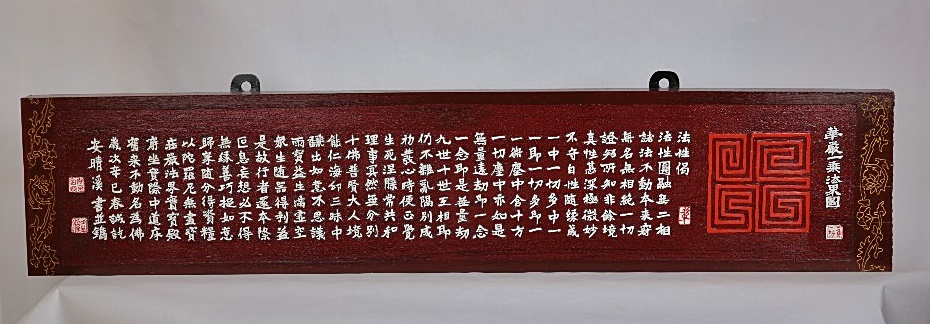 華嚴一乘法界圖
法性偈
法性圓融無二相
諸法不動本來寂
無名無相絶一切
證智所知非餘境
真性甚深極微妙
不守自性隨緣成
一中一切多中一
一即一切多即一
一微塵中含十方
一切塵中亦如是
無量遠劫即一念
一念即是無量劫
九世十世互相即
仍不雜亂隔別成
初發心時便正覺
生死涅槃常共和
理事冥然無分別
十佛普賢大人境
能仁海印三昧中
繁出如意不思議
雨寶益生滿虛空
衆生隨器得利益
是故行者還本際
叵息妄想必不得
無緣善巧捉如意
歸家隨分得資糧
以陀羅尼無盡寶
莊嚴法界實寶殿
窮坐實際中道床
舊來不動名為佛
歲次辛巳春誠託
安晴溪書並鐫